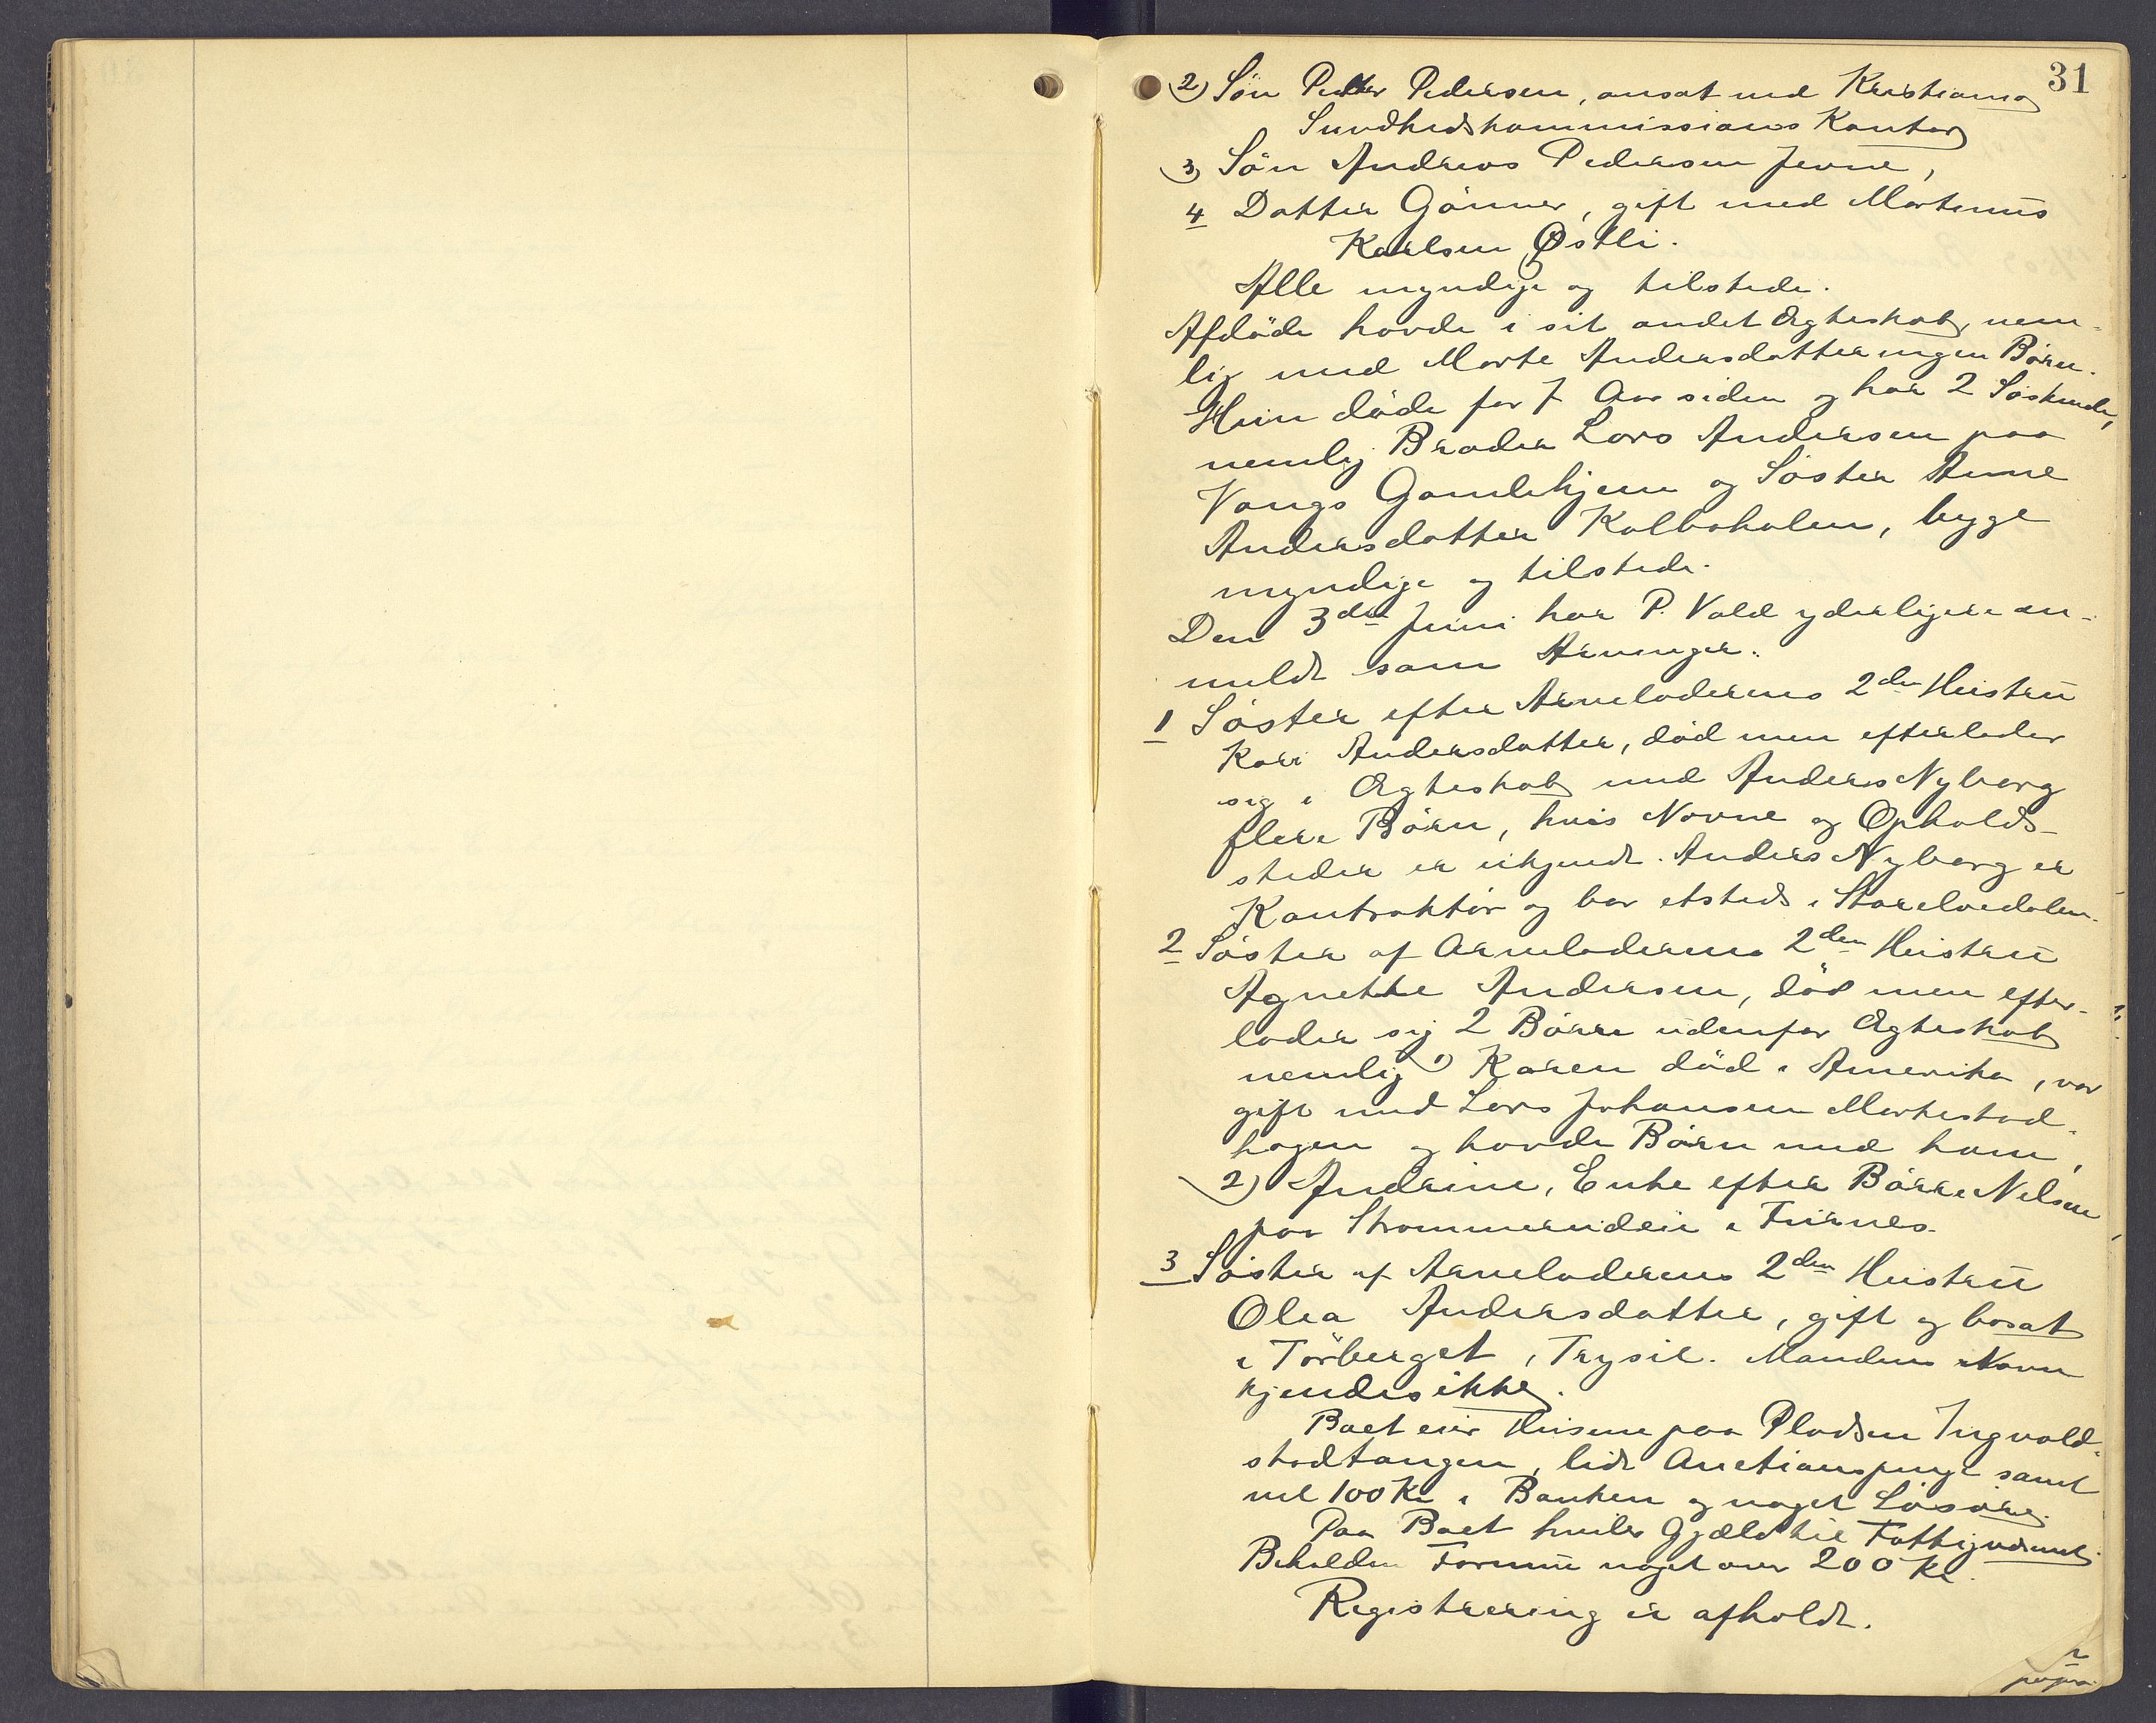 31
2) Søn Petter Pedersen, ansat ved Kristiania
Sundhedskommissions Kontor
3) Søn Andreas Pedersen Jevne,
4 Datter Gønner, gift med Martinus
Karlsen Østli.
Alle myndige og tilstede.
Afdøde havde i sit andet Ægteskab, nem-
lig med Marte Andersdatter ingen Børn.
Hun døde for 7 Aar siden og har 2 Søskende,
nemlig Broder Lars Andersen paa
Vangs Gamlehjem og Søster Anne
Andersdatter Kolboholen, begge
myndige og tilstede.
Den 3die Juni har P. Vold yderligere an-
meldt som Arvinger:
1 Søster efter Arveladerens 2den Hustru
Kari Andersdatter, død men efterlader
sig i Ægteskab med Anders Nyborg
flere Børn, hvis Navne og Opholds-
steder er ukjendt. Anders Nyborg er
Kontraktør og bor etsteds i Storelvedalen.
2 Søster af Arveladerens 2den Hustru
Agnethe Andersen, død men efter-
lader sig 2 Børn udenfor Ægteskab
nemlig 1) Karen død i Amerika, var
gift med Lars Johansen Martestad-
hagen og havde Børn med ham,
2) Andrine, Enke efter Børre Nilsen
paa Strommerudeie i Furnes.
3 Søster af Arveladerens 2den Hustru
Olea Andersdatter, gift og bosat
i Törberget i Trysil. Mandens Navn
kjendes ikke.
Boet eier Husene paa Pladsen Ingvold-
stadtangen, lidt Auctionspenge samt
vel 100 Kr i Banken og noget Løsøre.
Paa Boet hviler Gjæld til Fattigvæsenet.
Beholden Formue noget over 200 Kr.
Registrering er afholdt.